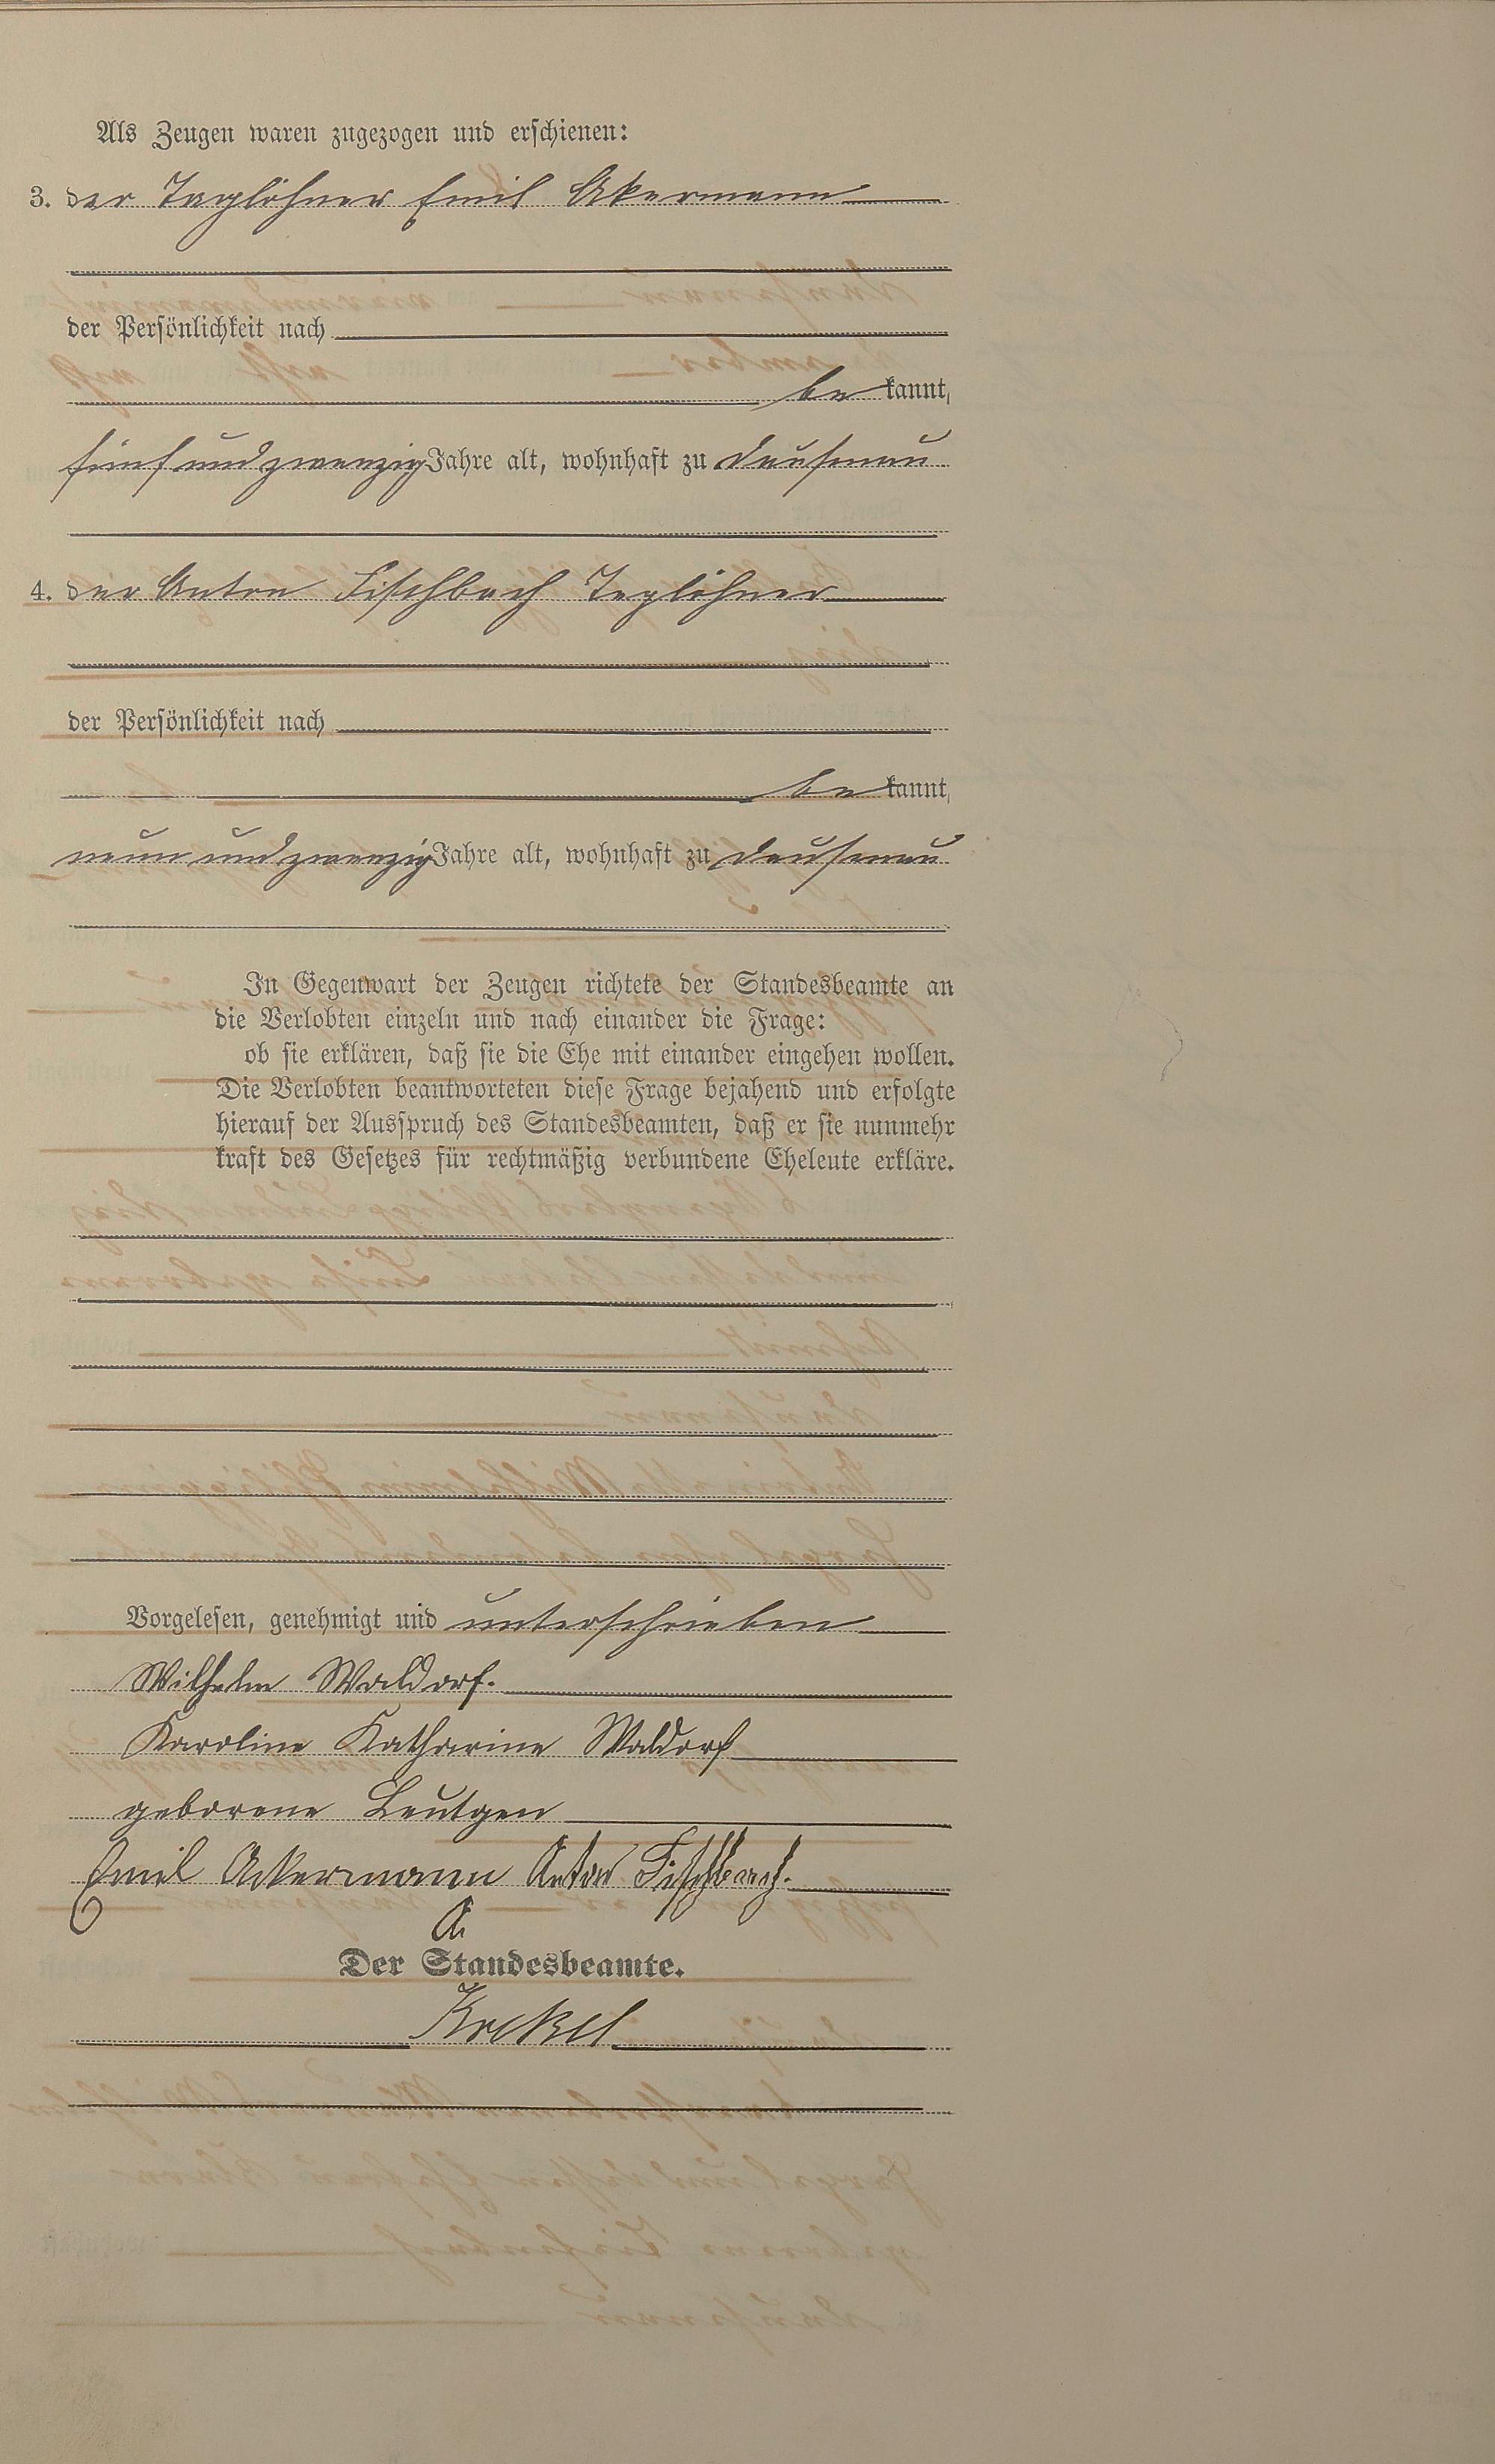 Als Zeugen waren zugezogen und erschienen:
3. der Taglöhner Emil Akermann
der Persönlichkeit nach
be kannt,
fünf und zwanzig Jahre alt, wohnhaft zu Dausenau
4. der Anton Fischbach Taglöhner
der Persönlichkeit nach
be kannt,
neun und zwanzig Jahre alt, wohnhaft zu Dausenau
In Gegenwart der Zeugen richtete der Standesbeamte an
die Verlobten einzeln und nach einander die Frage:
ob sie erklären, daß sie die Ehe mit einander eingehen wollen.
Die Verlobten beantworteten diese Frage bejahend und erfolgte
hierauf der Ausspruch des Standesbeamten, daß er sie nunmehr
kraft des Gesetzes für rechtmäßig verbundene Eheleute erkläre.
Vorgelesen, genehmigt und unterschrieben
Wilhelm Waldorf.
Karoline Katharine Waldorf
geborene Leutgen
Emil Ackermann Anton Fischbach.
Der Standesbeamte.
Krekel